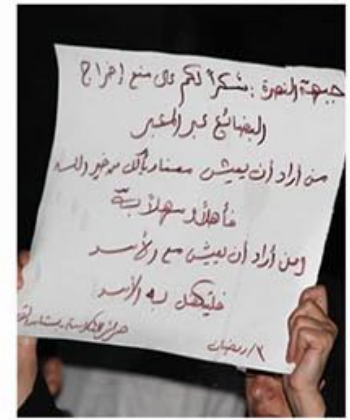 جبهة النصرة : شكراً لكم على منع إخراج
البضائع عبر المعبر
من أراد أن يعيش معنا ويأكل من خير والله
فأهلاً وسهلاً به
ومن أراد أن يعيش مع الأسد
فليهكل به الأسد
٢/رمضان